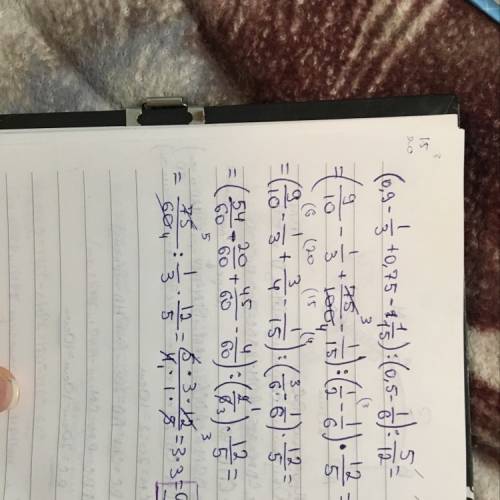 15
20
(0,9 - 1/3 + 0,75 - 1/15) : (0,5 - 1/6) : 5/12 =
= (9/10 - 1/3 + 75/100 - 1/15) : (1/2 - 1/6) · 12/5 =
= (9/10 - 1/3 + 3/4 - 1/15) : (3/6 - 1/6) · 12/5 =
= (54/60 - 20/60 + 45/60 - 4/60) : (2/6) · 12/5 =
= 75/60 : 1/3 · 12/5 = 5 · 3 · 12 / 4 · 1 · 5 = 3 · 3 = 9